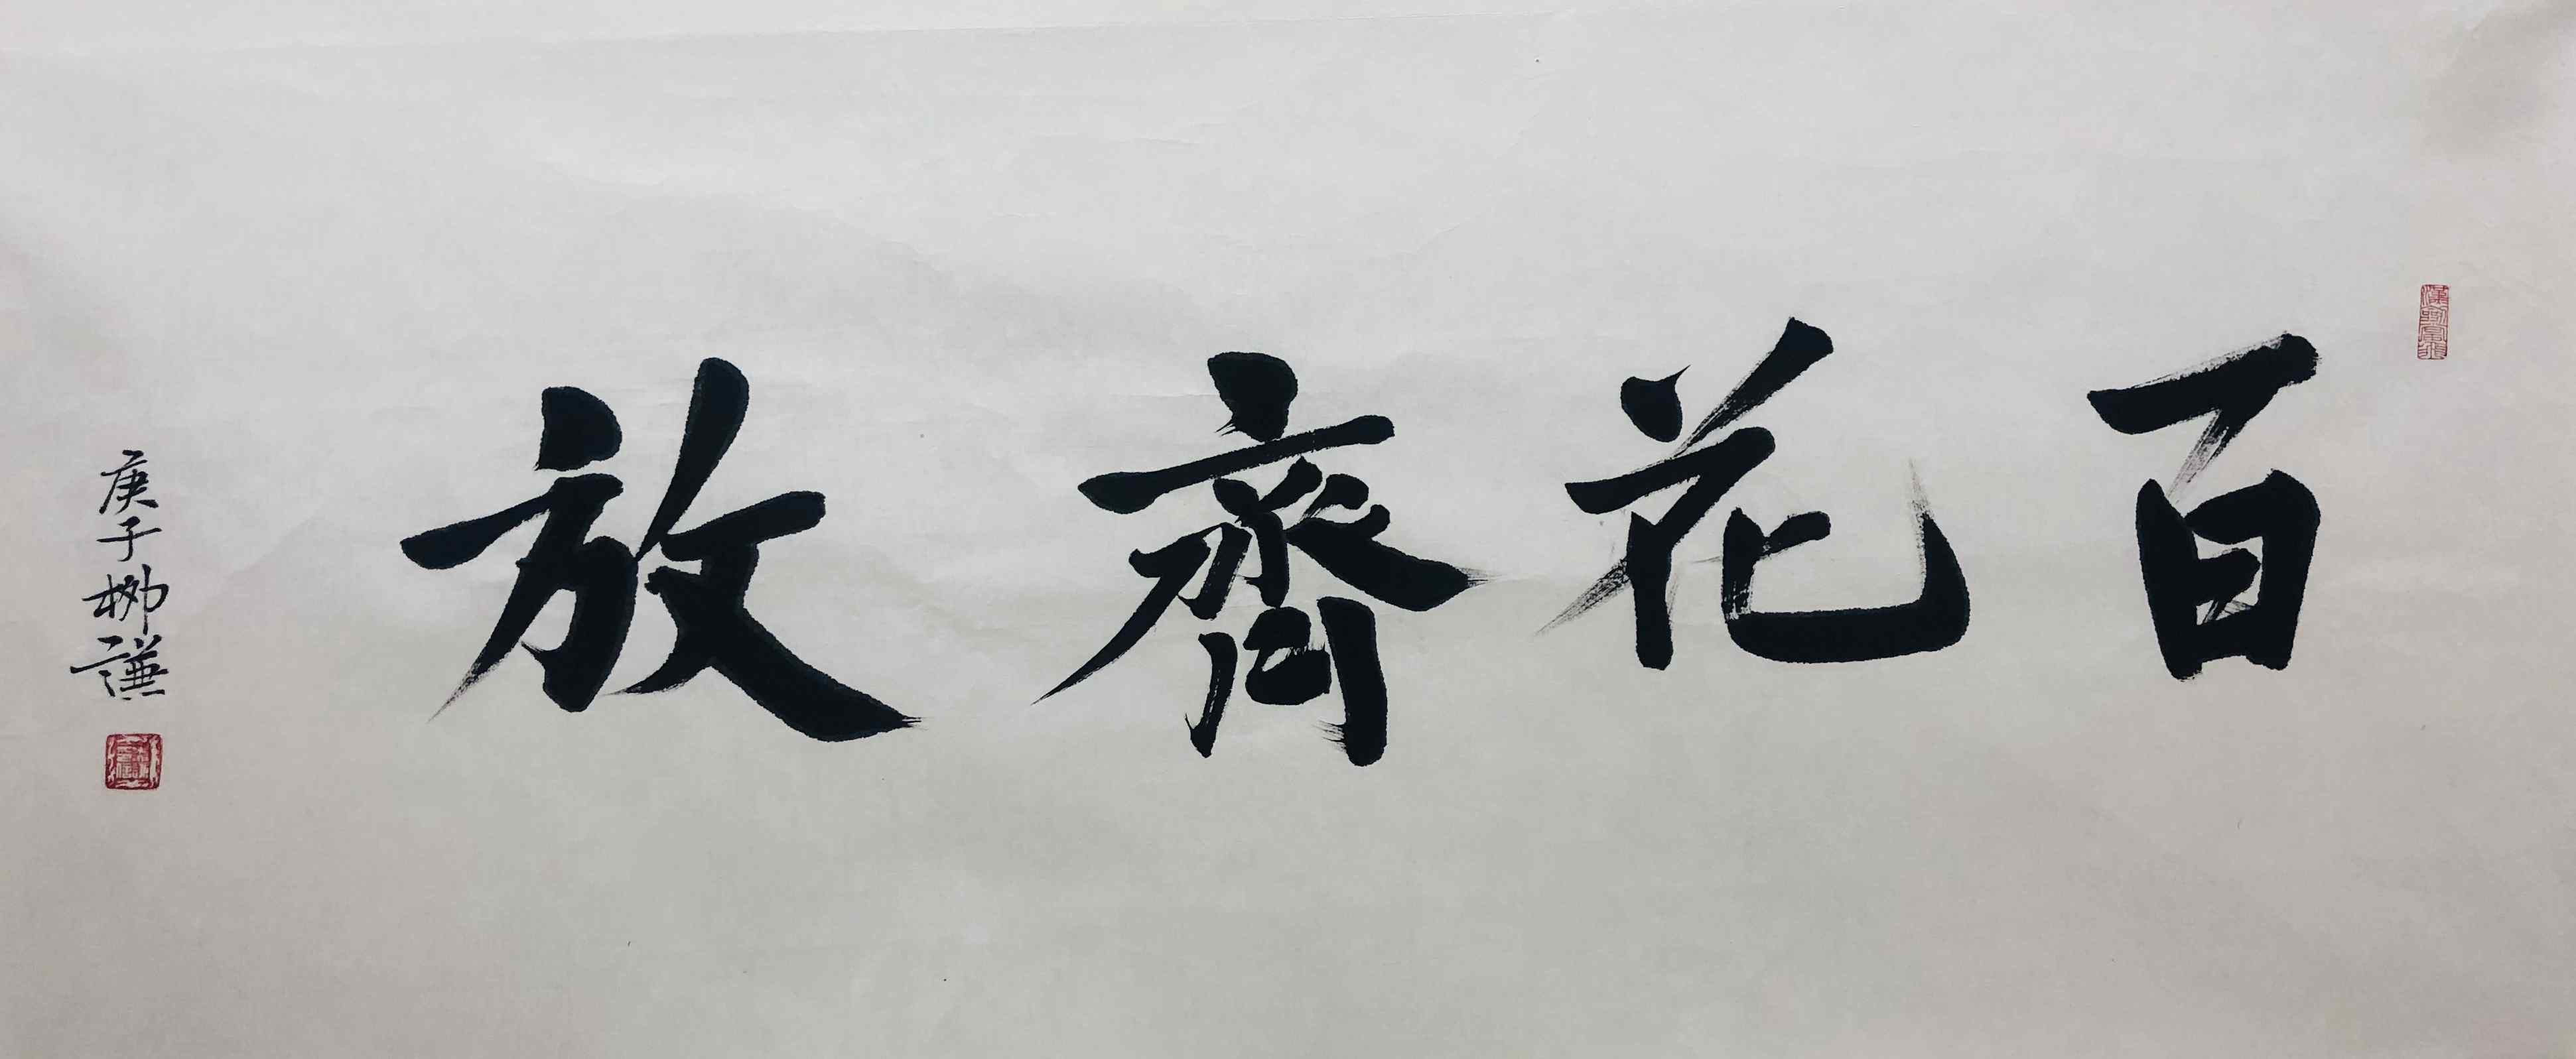 百花齊放
庚子柳謙